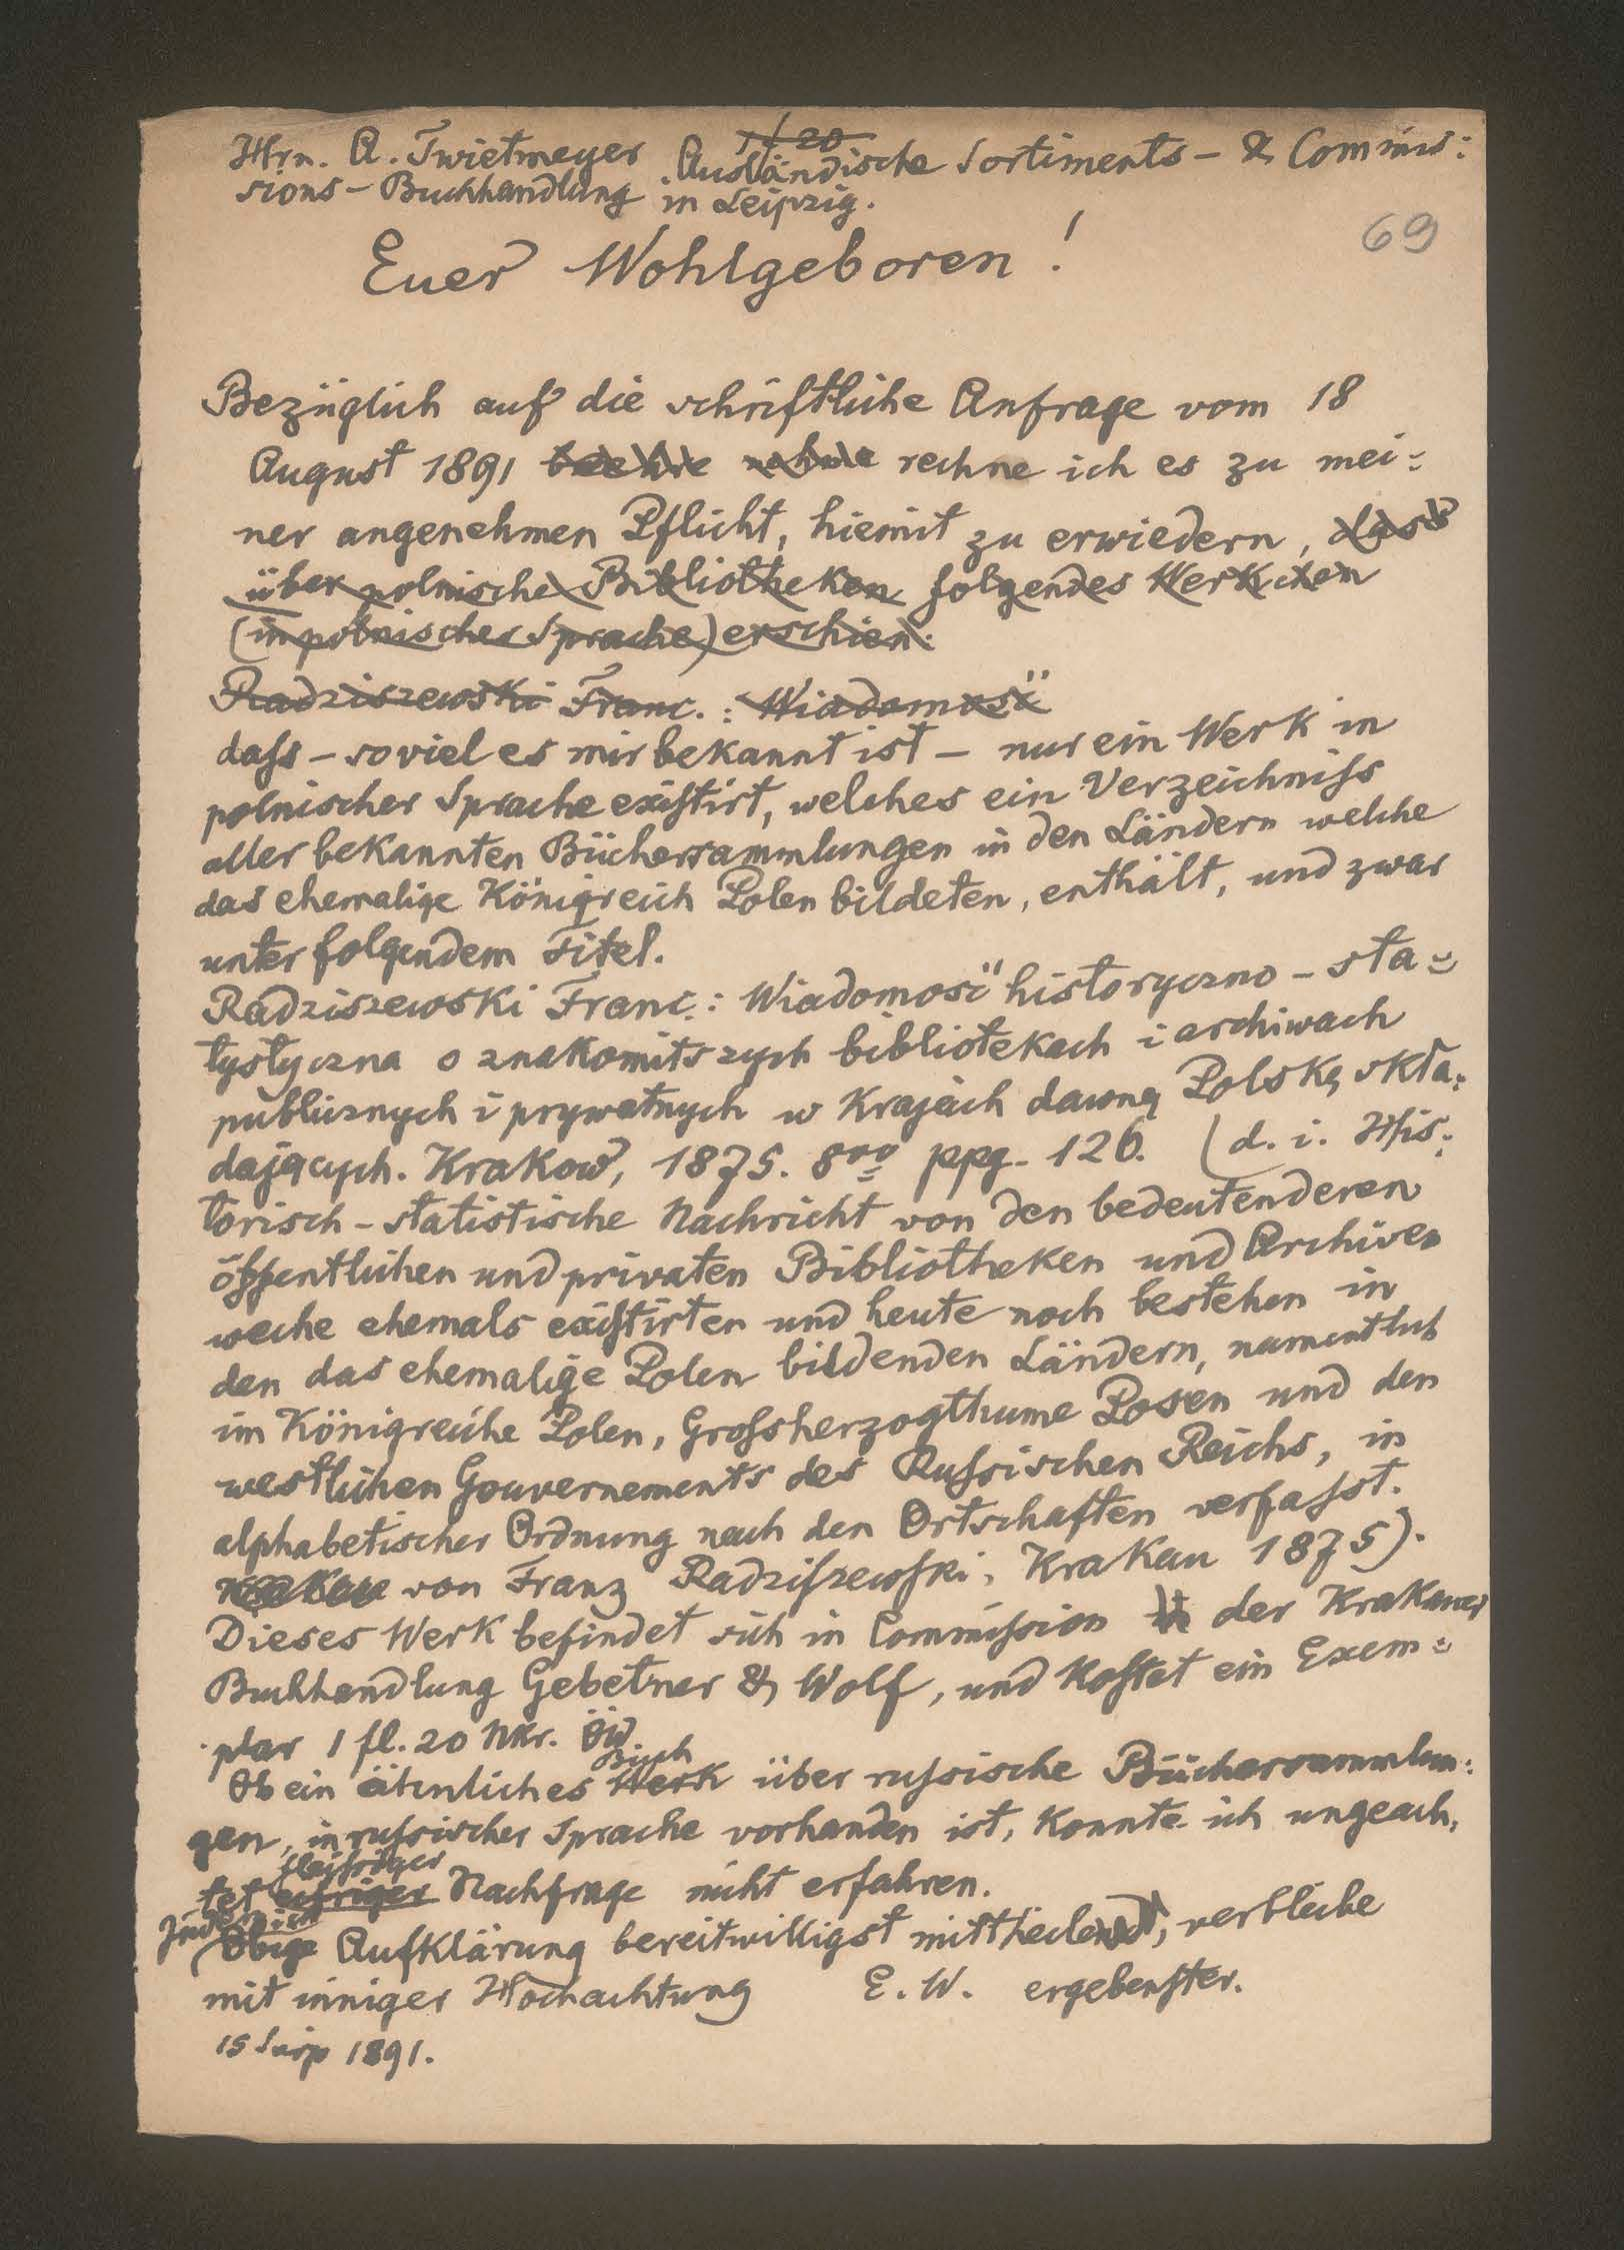 Hrn. A. Twietmeyer Ausländische Sortiments- & Commis:
sions-Buchhandlung in Leipzig.
69
Euer Wohlgeboren!
Bezüglich auf die schriftliche Anfrage vom 18
August 1891 rechne ich es zu mei:
ner angenehmen Pflicht, hiemit zu erwiedern, dass
über polnische Bibliotheken folgendes Werkchen
(in polnischer Sprache) erschien:
Radziszewski Franc.: Wiadomość
daſs – soviel es mir bekannt ist – nur ein Werk in
polnischer Sprache exiſtirt, welches ein Verzeichniſs
aller bekannten Büchersammlungen in den Ländern welche
das ehemalige Königreich Polen bildeten, enthält, und zwar
unter folgendem Titel.
Radziszewski Franc.: Wiadomość historyczno-sta:
tystyczna o znakomitszych bibliotekach i archiwach
publicznych i prywatnych w krajach dawną Polskę skła:
dających. Krakow, 1875. 8vo ppg. 126. (d. i. His:
torisch-statistische Nachricht von den bedeutenderen
öffentlichen und privaten Bibliotheken und Archiven
weche ehemals exiſtirten und heute noch bestehen in
den das ehemalige Polen bildenden Ländern, namentlich
im Königreiche Polen, Groſsherzogthume Posen und den
westlichen Gouvernements des Ruſsischen Reichs, in
alphabetischer Ordnung nach den Ortschaften verfaſst.
Krakau von Franz Radziſzewſki, Krakau 1875).
Dieses Werk befindet sich in Commiſsion in der Krakauer
Buchhandlung Gebetner & Wolf, und koſtet ein Exem:
plar 1 fl. 20 Nkr. ÖW.
Buch
Ob ein ähnliches Werk über ruſsische Büchersammlun:
gen, in ruſsischer Sprache vorhanden ist, konnte ich ungeach,
fleiſsiger
tet eifriger Nachfrage nicht erfahren.
Indem ich
Obige Aufklärung bereitwilligst mittheilend, verbleibe
mit inniger Hochachtung E. W. ergebenſter.
15 Sierp 1891.